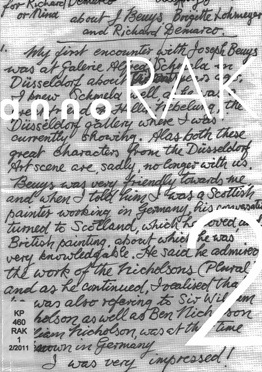 for Richard Demarco
or Mina about J Beuys Brigitte Lohmeyer
and Richard Demarco.
1. My first encounter with Joseph Beuys
was at Galerie Alfred Schmela in
Düsseldorf about
knew Schmela well as he was
Hella Nebelung, the
Düsseldorf gallery where I was
currently showing. Alas both these
great characters from the Düsseldorf
Art scene are, sadly, no longer with us.
Beuys was very friendly towards me
and when I told him I was a Scottish
painter working in Germany, his conversation
turned to Scotland, which he loved and
British painting, about which he was
very knowledgable. He said he admired
the work of the Nicholsons (Plural)
and as he continued, I realised that
he was also refering to Sir William
Nicholson as well as Ben Nicholson
William Nicholson, was at the time
known in Germany
I was very impressed!
anno RAK
2
KP
460
RAK
1
2/2011